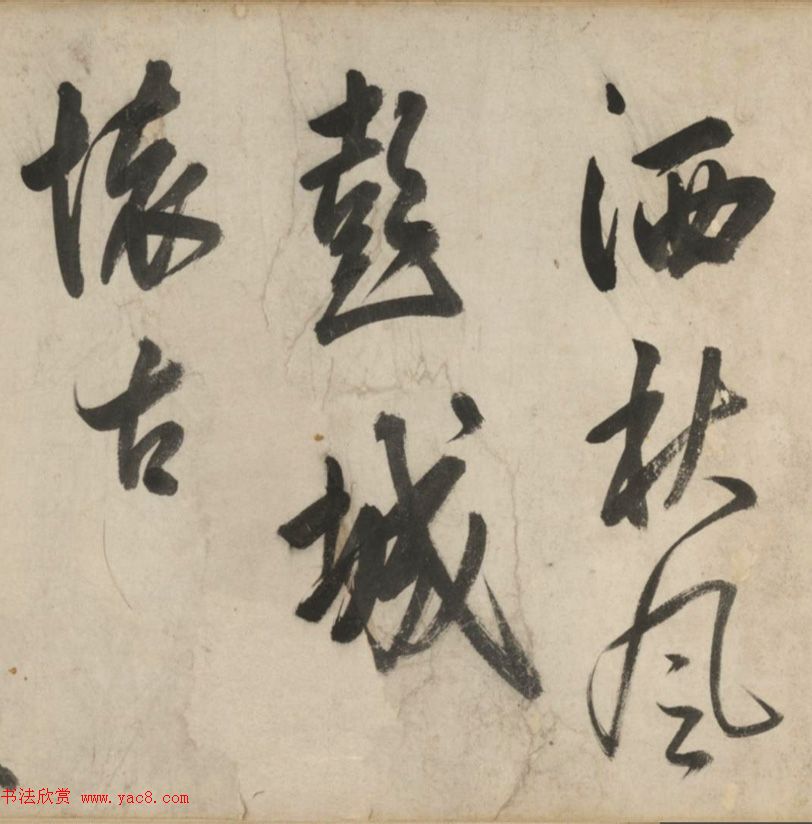 洒秋风
彭城
懐古
书法欣赏 www.yac8.com